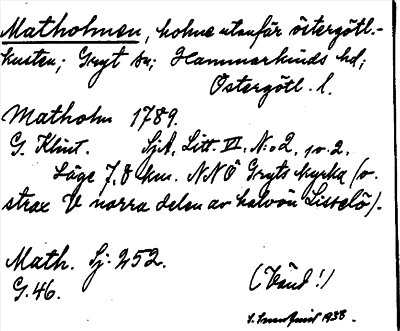 Matholmen, holme utanför östergötl.-
kusten; Gryt sn; Hammarkinds hd;
Östergötl. l.
Matholm 1789.
G. Klint. SjA, Litt. VI. N:o 2, s. 2.
Läge 7,8 km. NNÖ Gryts kyrka (o.
strax V norra delen av halvön Listelö).
Math. Sj: 252.
G. 46.
(Vänd!)
1938.